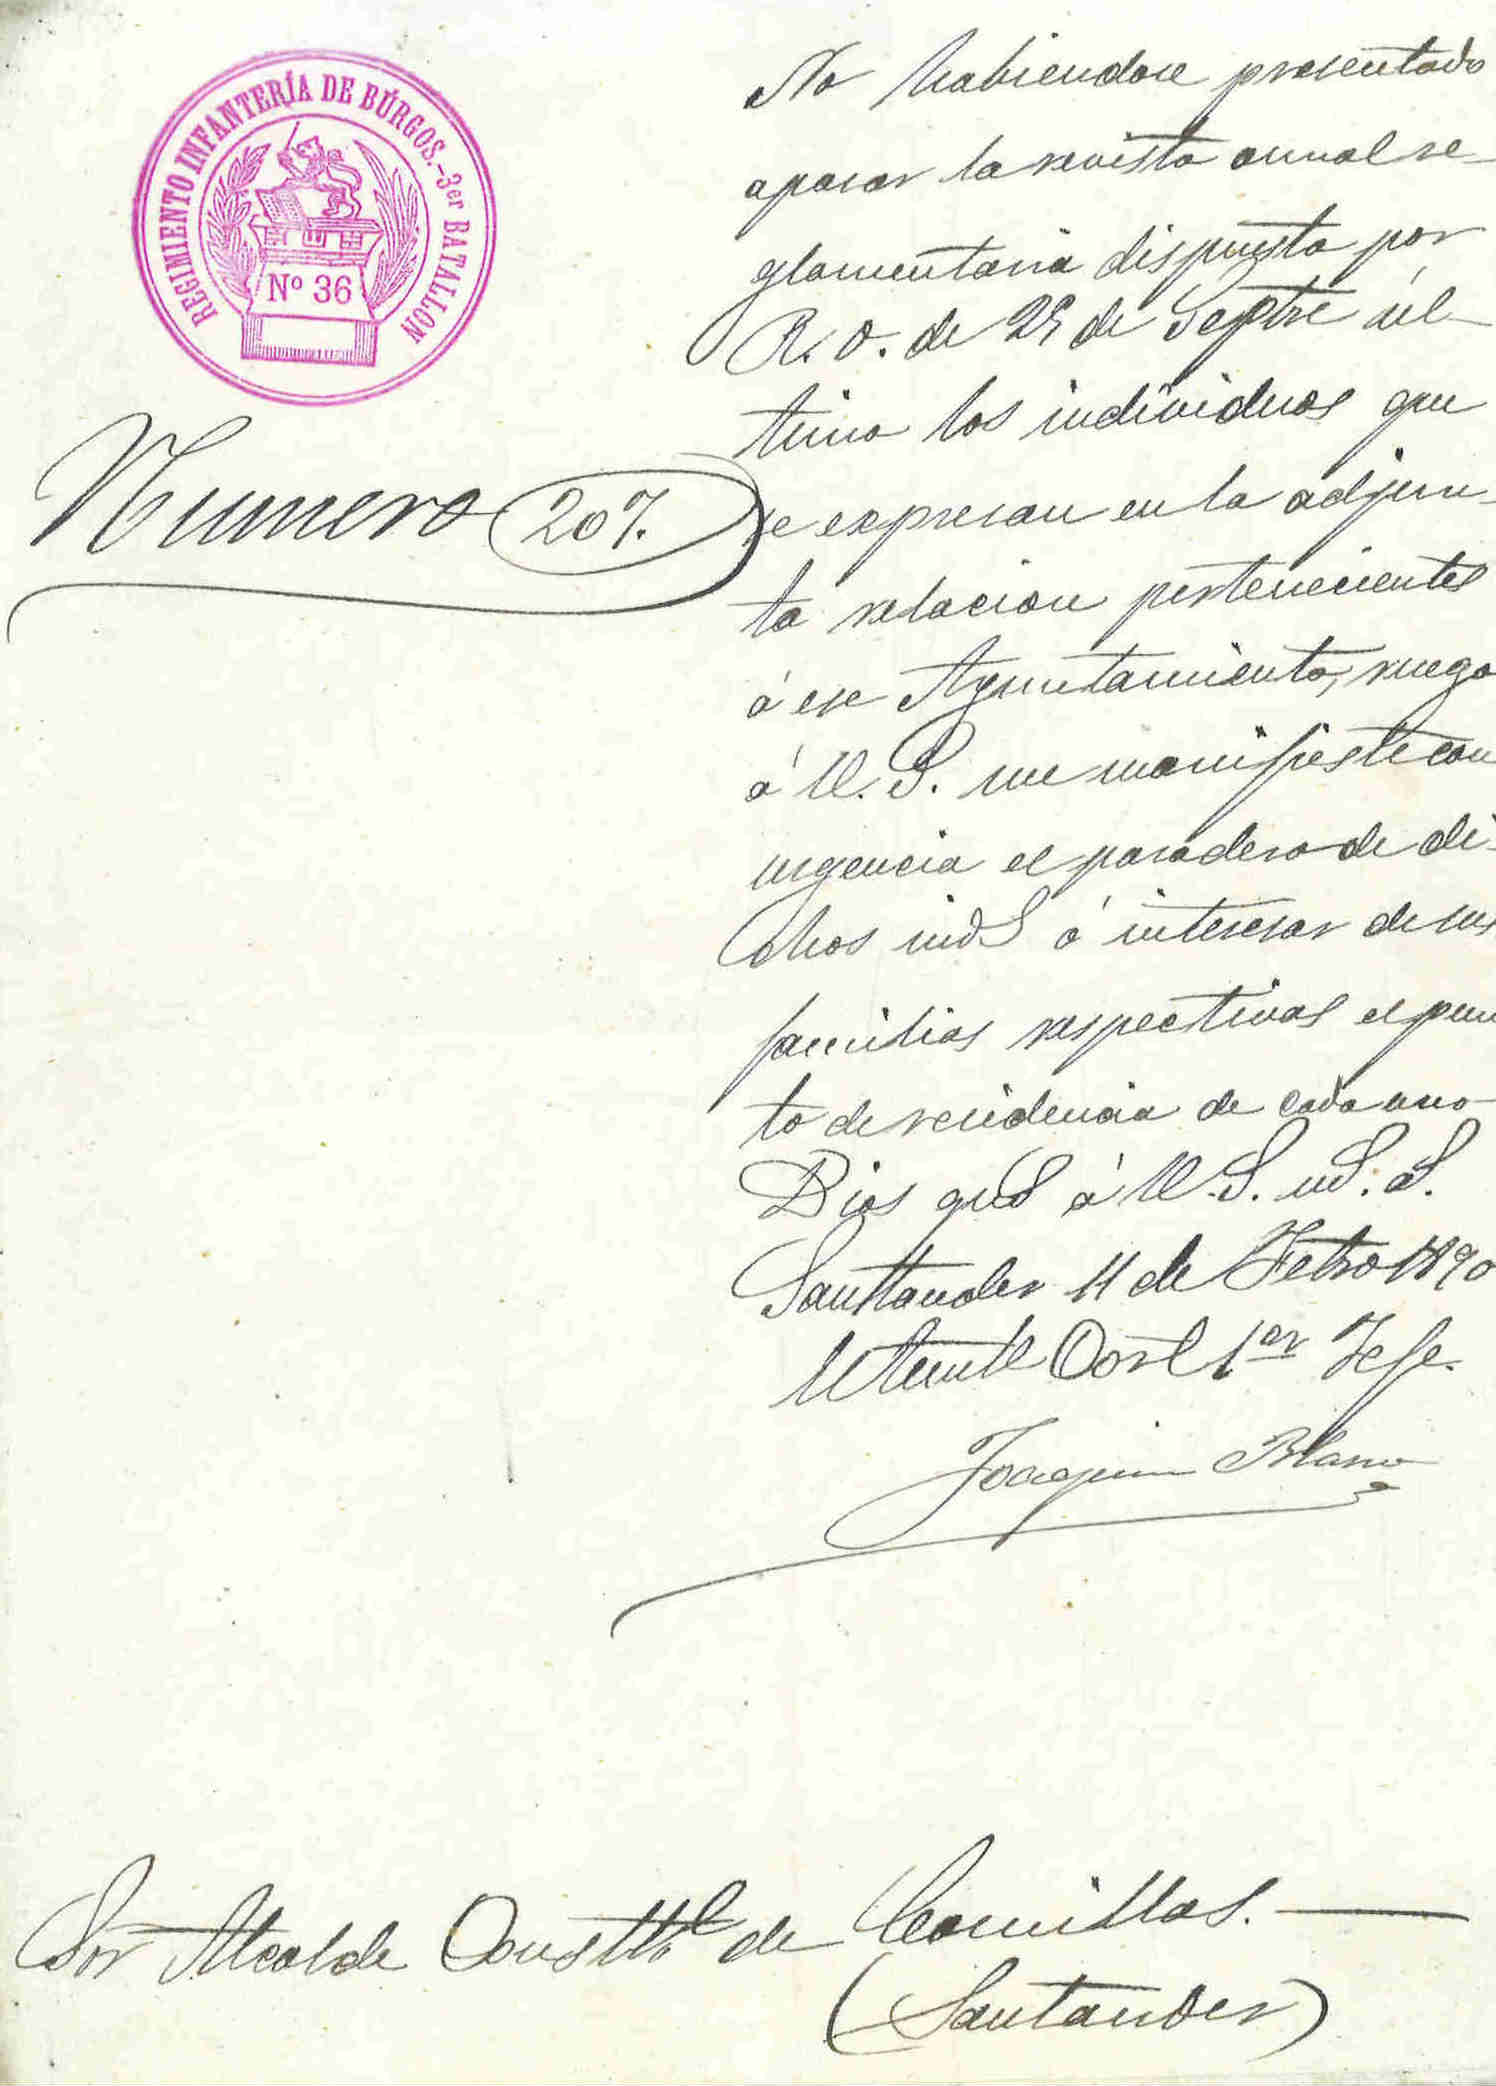 REGIMIENTO INFANTERÍA DE BÚRGOS.-3er BATALLON
Nº 36
Numero 207.
No habiendose presentado
apasar la revista anual re-
glamentaria dispuesta por
R. O. de 25 de Septre úl-
timo los individuos que
se expresan en la adjun-
ta relacion pertenecientes
á ese Ayuntamiento, ruego
á V. S. me manifieste con
urgencia el paradero de di-
chos inds ó interesar de sus
familias respectivas el pun
to de residencia de cada uno
Dios gud á V. S. ms. as.
Santtander 11 de Febro 1890
El Tente Corl 1er Jefe.
Joaquin Blanco
Sor Alcalde Consttl de Comillas.
(Santander)